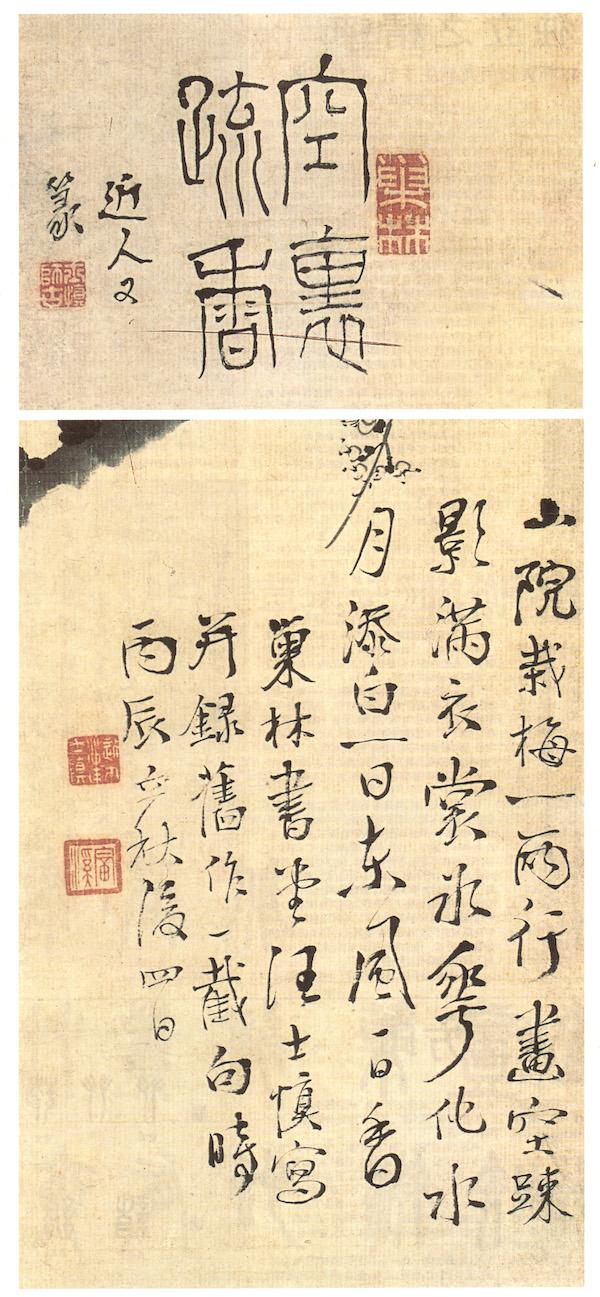 巢林
空裏
疏香
近人又
篆
山院栽梅一兩行畫空踈
影滿衣裳冰華化水
月添白一日東風一日香
巢林書堂汪士慎寫
并録舊作一截句時
丙辰立秋後四日
富溪